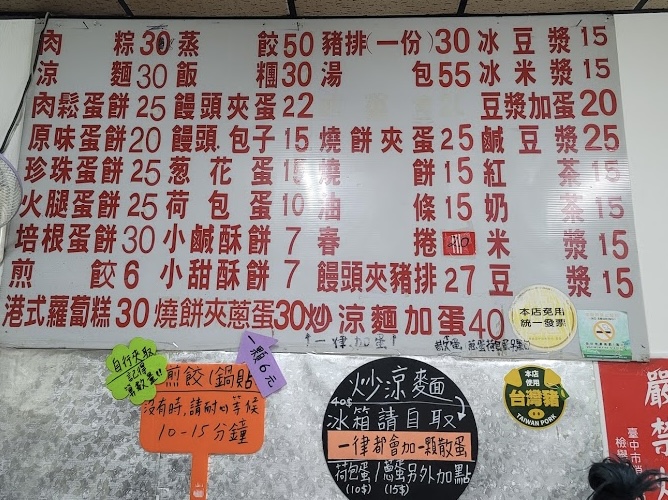 肉粽30 蒸餃50 豬排(一份)30 冰豆漿15
涼麵30 飯糰30 湯包55 冰米漿15
肉鬆蛋餅25 饅頭夾蛋22 豆漿加蛋20
原味蛋餅20 饅頭.包子15 燒餅夾蛋25 鹹豆漿25
珍珠蛋餅25 葱花蛋15 燒餅15 紅茶15
火腿蛋餅25 荷包蛋10 油條15 奶茶15
培根蛋餅30 小鹹酥餅7 春捲 米漿15
煎餃6 小甜酥餅7 饅頭夾豬排27 豆漿15
港式蘿蔔糕30 燒餅夾蔥蛋30 炒涼麵加蛋40
一律加蛋
本店免用
統一發票
自行夾取
記得
算數量!!
一顆6元
煎餃(鍋貼)
沒有時,請耐心等候
10-15分鐘
炒涼麵
40$
冰箱請自取
一律都會加一顆散蛋
荷包蛋/蔥蛋另外加點
(10$) (15$)
本店
使用
台灣豬
TAIWAN PORK
嚴禁
臺中市